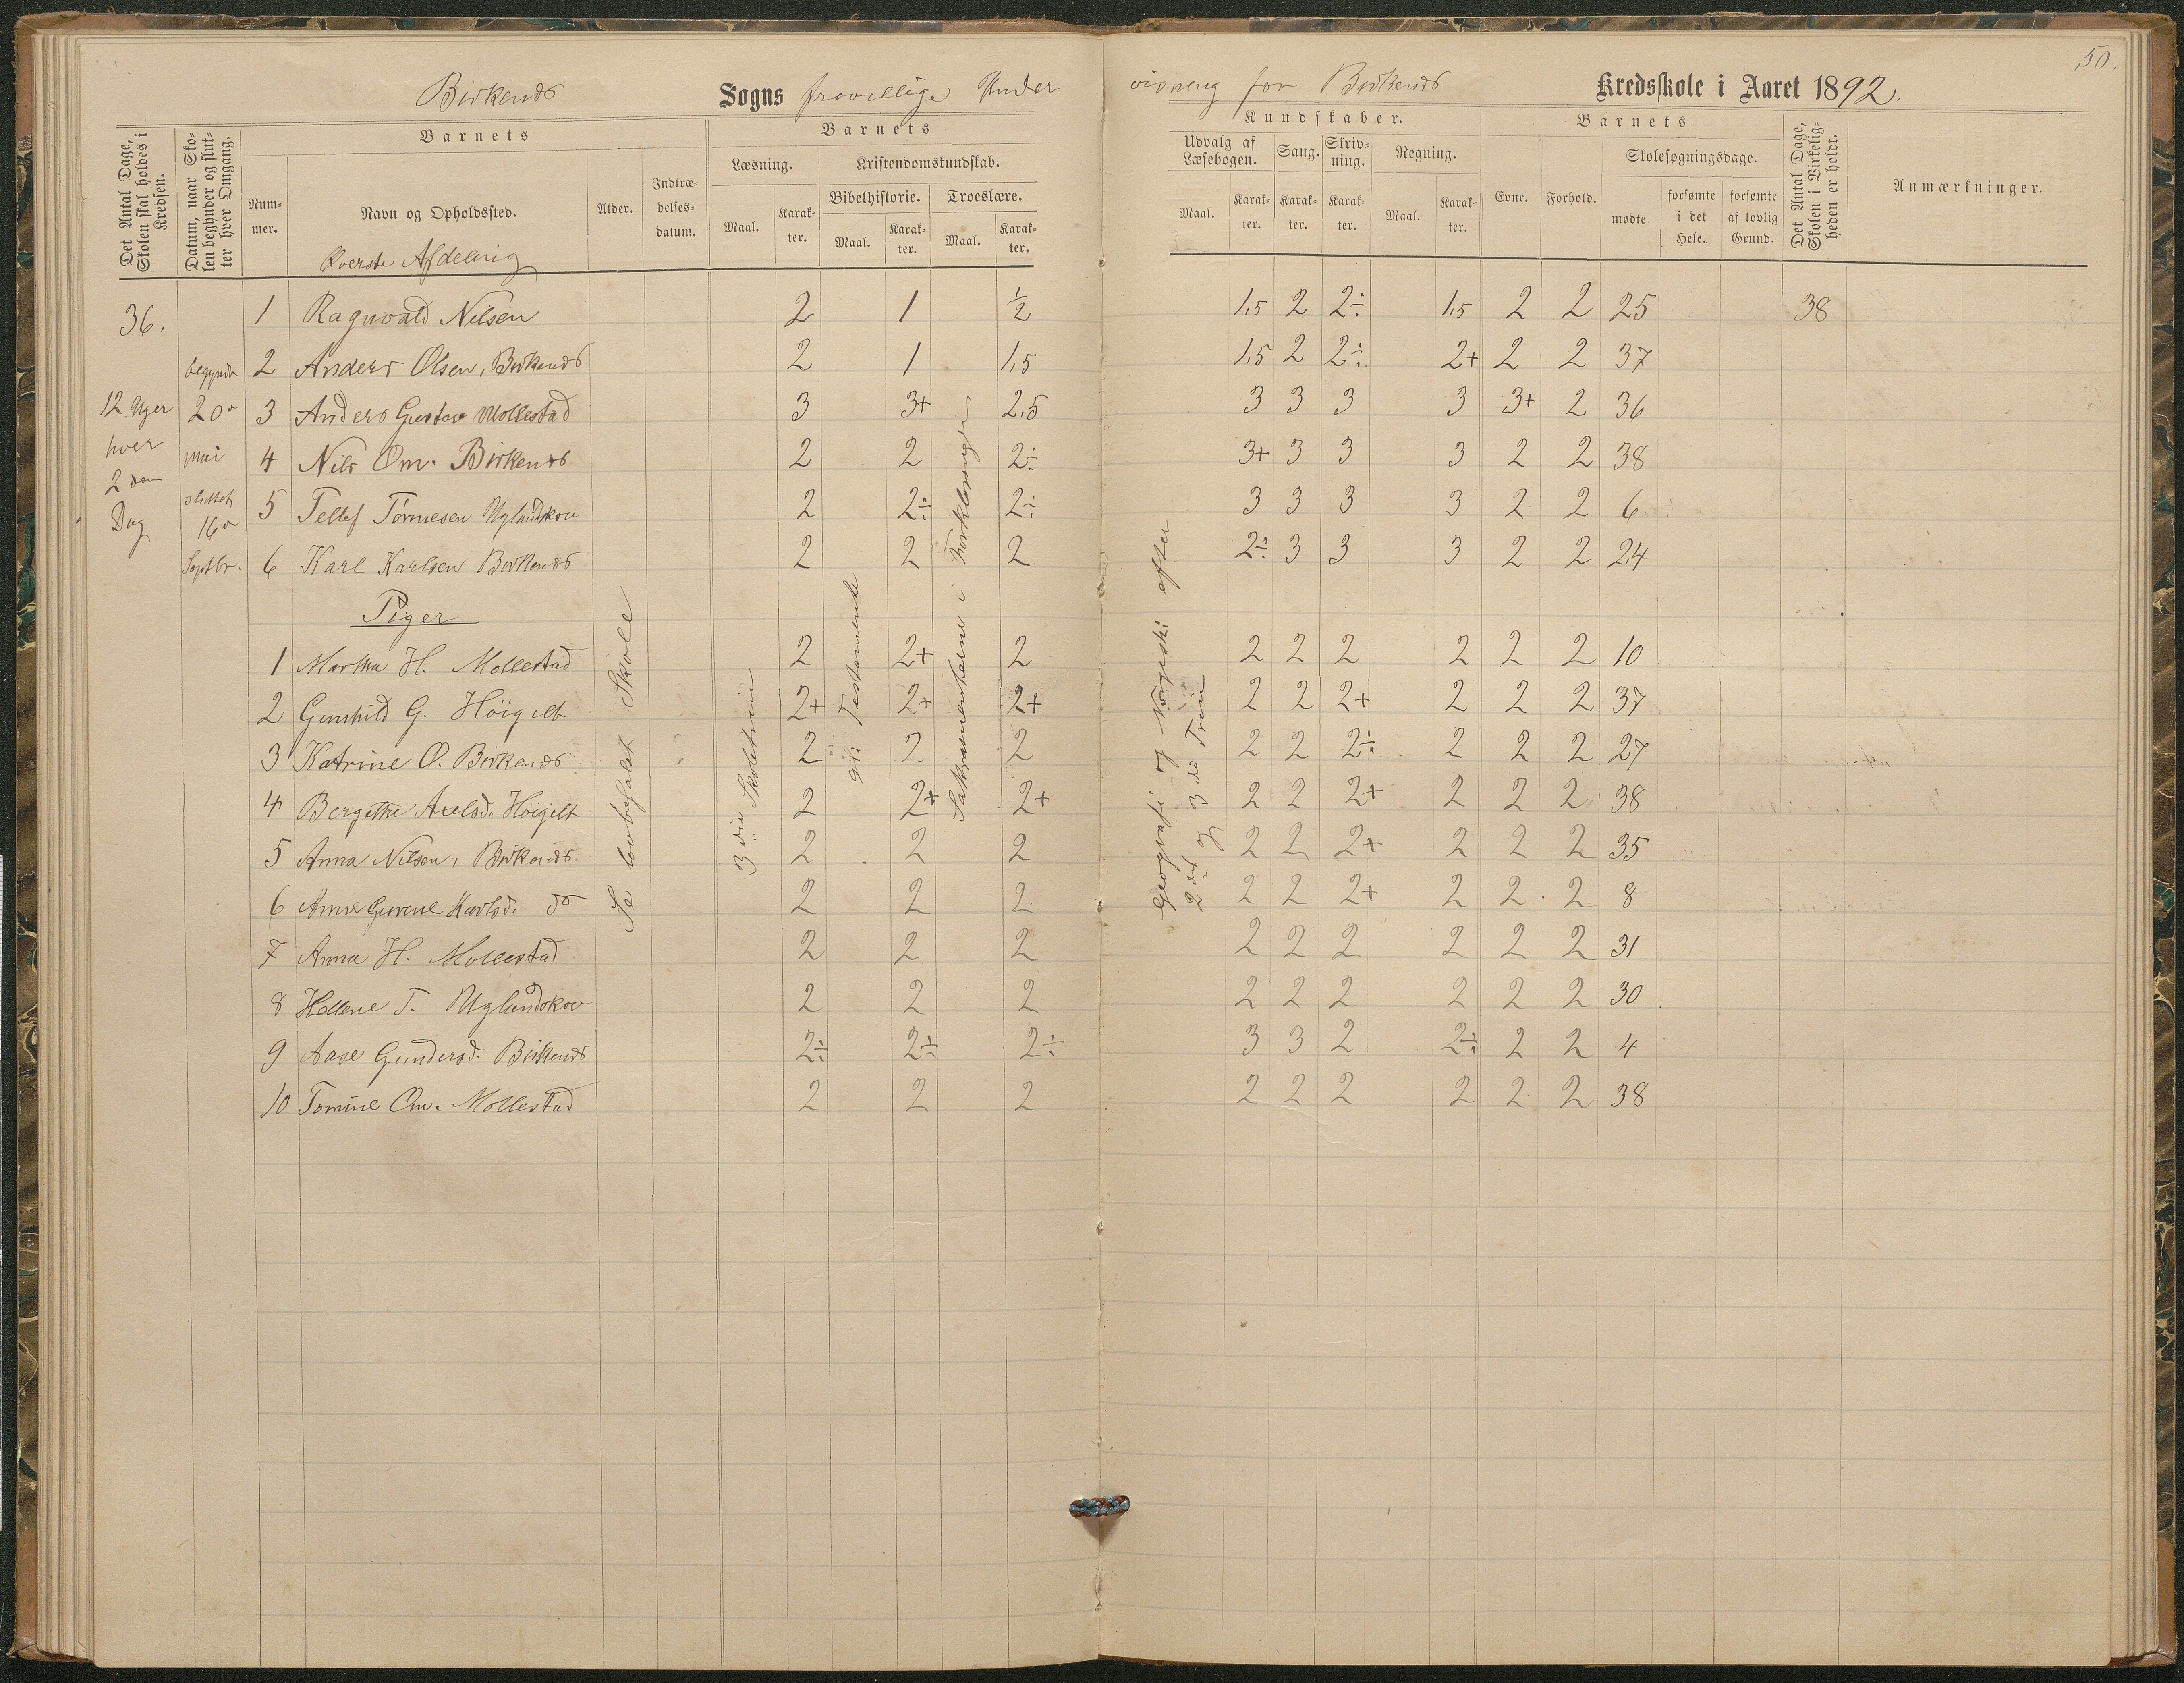 50.
Birkenæs Sogns frivillige Under
visning for Birkenæs Kredsskole i Aaret 1892.
Det Antal Dage, Skolen skal holdes i Kredsen.
Datum, naar Skolen begynder og slutter hver Omgang.
Barnets
Nummer.
Navn og Opholdssted.
Øverste Afdeling
Alder.
Indtrædelsesdatum.
Barnets
Læsning.
Maal.
Karakter.
Kristendomskundskab.
Bibelhistorie.
Maal.
Karakter.
Troeslære.
Maal.
Karakter.
Kundskaber.
Udvalg af Læsebogen.
Maal.
Karakter.
Sang.
Karakter.
Skrivning.
Karakter.
Regning.
Maal.
Karakter.
Barnets
Evne.
Forhold.
Skolesøgningsdage.
mødte
forsømte i det Hele.
forsømte af lovlig Grund.
Det Antal Dage, Skolen i Virkeligheden er holdt.
Anmærkninger.
36.
12 Uger
hver
2den
Dag
begyndt
20de
juni
sluttet
16de
Septbr.
1 Ragnvald Nilsen 2 1 1/2 1,5 2 2÷ 1,5 2 2 25 38
2 Anders Olsen, Birkenæs 2 1 1,5 1,5 2 2÷ 2+ 2 2 37
3 Anders Gustav Mollestad 3 3+ 2,5 3 3 3 3 3+ 2 36
4 Nils Om. Birkenæs 2 2 2÷ 3+ 3 3 3 2 2 38
5 Tellef Tømesen Uglandskov 2 2÷ 2÷ 3 3 3 3 2 2 6
6 Karl Karlsen Birkenæs 2 2 2 2÷ 3 3 3 2 2 24
Piger
1 Martha H. Mollestad 2 2+ 2 2 2 2 2 2 2 10
2 Gunhild G. Høigilt 2+ 2+ 2+ 2 2 2+ 2 2 2 37
3 Katrine O. Birkenæs 2 2 2 2 2 2÷ 2 2 2 27
4 Bergithe Axelsd. Høigilt 2 2+ 2+ 2 2 2+ 2 2 2 38
5 Anna Nilsen, Birkenæs 2 2 2 2 2 2+ 2 2 2 35
6 Anne Gurene Karlsd. do 2 2 2 2 2 2+ 2 2 2 8
7 Anna H. Mollestad 2 2 2 2 2 2 2 2 2 31
8 Hellene T. Uglandskov 2 2 2 2 2 2 2 2 2 30
9 Aase Gundersd. Birkenæs 2÷ 2÷ 2÷ 3 3 2 2÷ 2 2 4
10 Tomine Om. Mollestad 2 2 2 2 2 2 2 2 2 38
Se lovbefalet Skole
3die Skoletrin
gl: Testamente
Sakramenterne i Forklaringen
Geografi og Norgeshi efter
2det og 3die Trin